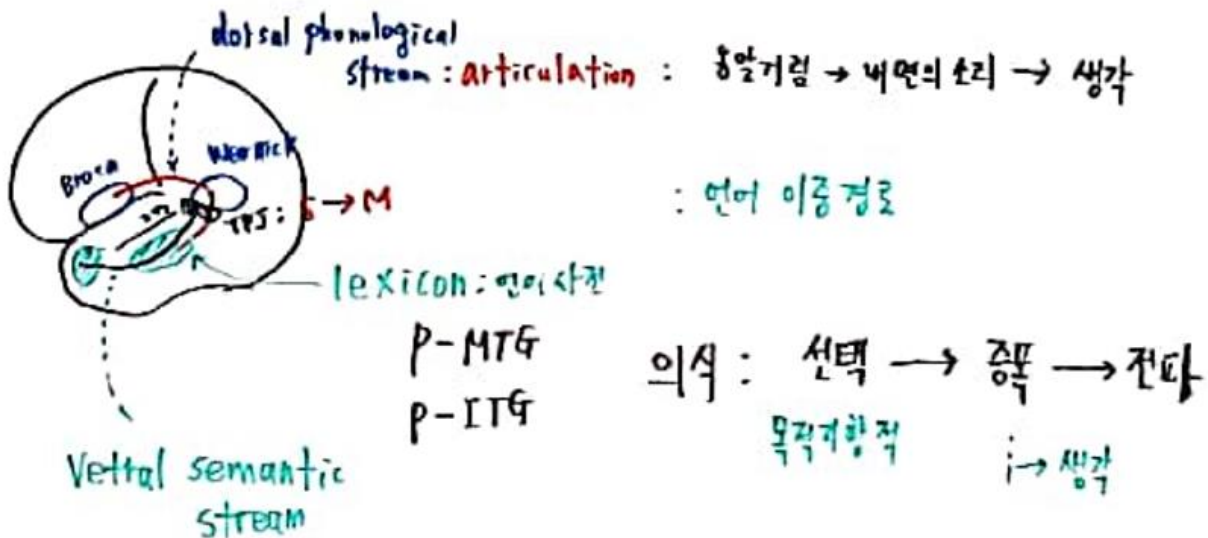 dorsal phonological
stream : articulation : 옹알거림 → 내면의 소리 → 생각
Broca
Wernick
TPJ : S → M
: 언어 이중경로
lexicon : 언어사전
p-MTG
p-ITG
의식 : 선택 → 증폭 → 전파
목적지향적
i → 생각
Vetral semantic
stream